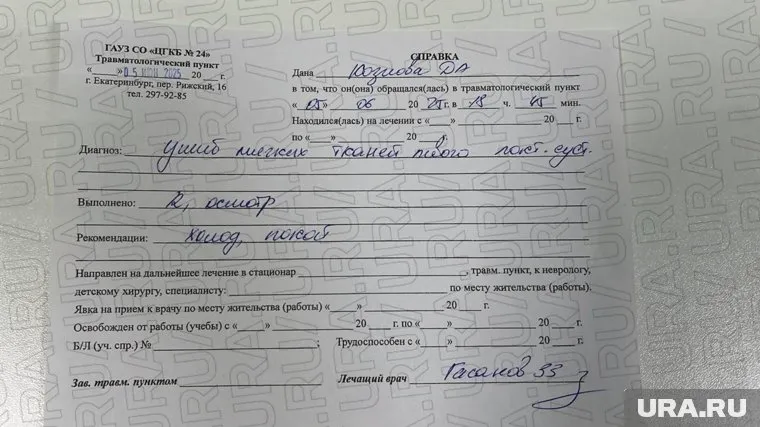 ГАУЗ СО «ЦГКБ № 24»
Травматологический пункт
«___» 05 ИЮН 2025 20___ г.
г. Екатеринбург, пер. Рижский, 16
тел. 297-92-85
СПРАВКА
Дана ДА
в том, что он(она) обращался(лась) в травматологический пункт
«05» 06 2025 г. в 18 ч. 45 мин.
Находился(лась) на лечении с «___» 20___ г.
по «___» 20___ г.
Диагноз: Ушиб мягких тканей локт. суст.
Выполнено: R, осмотр
Рекомендации: холод, покой
Направлен на дальнейшее лечение в стационар ___, травм. пункт, к неврологу,
детскому хирургу, специалисту: ___ по месту жительства (работы).
Явка на прием к врачу по месту жительства (работы) «___» 20___ г.
Освобожден от работы (учебы) с «___» 20___ г. по «___» 20___ г.
Б/Л (уч. спр.) № ___ Трудоспособен с «___» 20___ г.
Зав. травм. пунктом ___ Лечащий врач Гасанов ЗЗ
URA.RU